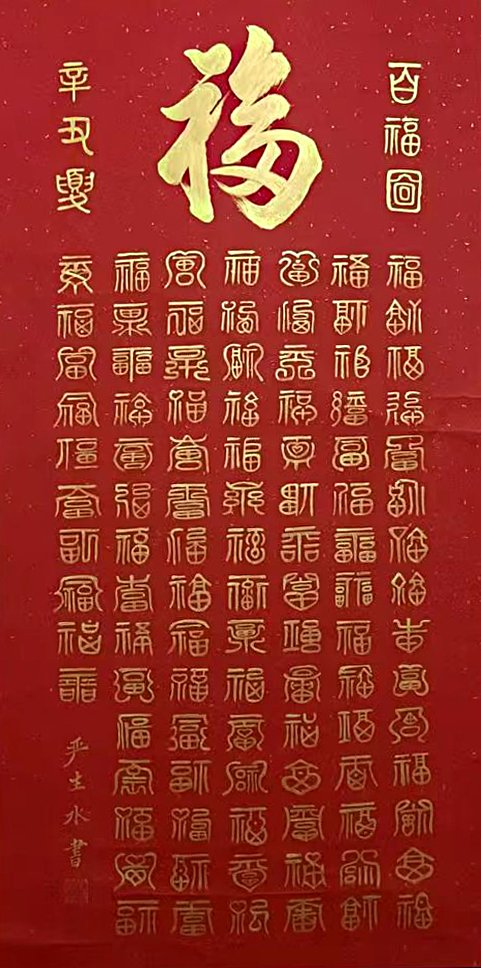 百福圖
福
辛丑夏
福福福福福福福福福福福福福福福
福福福福福福福福福福福福福福福
福福福福福福福福福福福福福福福
福福福福福福福福福福福福福福福
福福福福福福福福福福福福福福福
福福福福福福福福福福福福福福福
福福福福福福福福福福
生水書